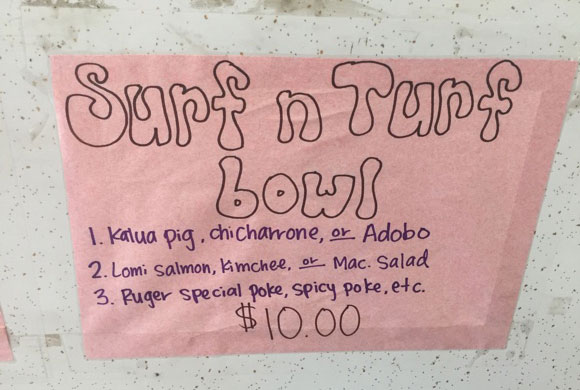 Surf n Turf
bowl
1. Kalua pig, chicharrone, or Adobo
2. Lomi salmon, Kimchee, or Mac. Salad
3. Ruger special poke, spicy poke, etc.
$10.00